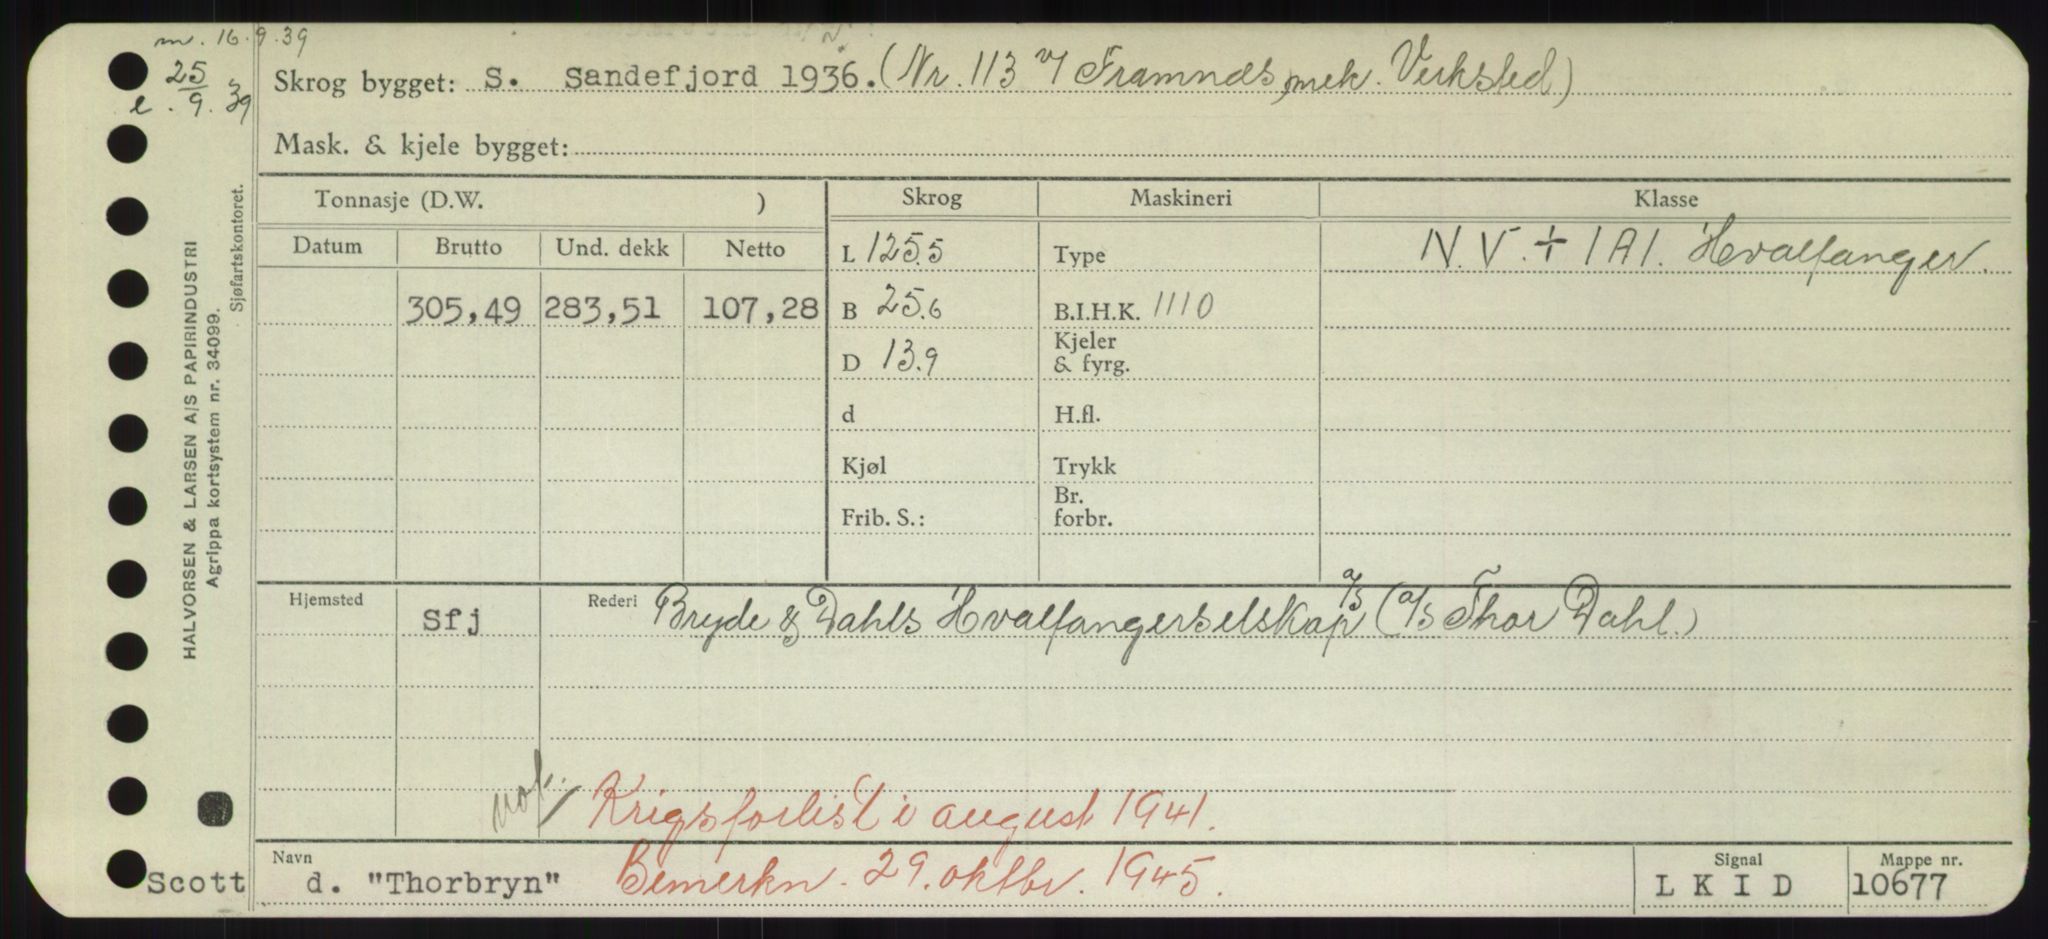 m. 16.9.39
25
e. 9. 39
Skrog bygget: S. Sandefjord 1936. (Nr. 113 v/ Framnæs mek. Verksted)
Mask. & kjele bygget:
Tonnasje (D.W. )
Skrog
Maskineri
Klasse
Datum
Brutto
Und. dekk
Netto
L 125.5
Type
N.V. + 1A1. Hvalfanger.
305,49
283,51
107,28
B 25.6
B.I.H.K. 1110
D 13.9
Kjeler
& fyrg.
d
H.fl.
Kjøl
Trykk
Frib. S.:
Br.
forbr.
Hjemsted
Sfj
Rederi
Bryde & Dahls Hvalfangerselskap a/s (a/s Thor Dahl.)
Krigsforlist i august 1941.
Scott
Navn
d. "Thorbryn"
Bemerkn. 29. oktbr. 1945.
Signal
L K I D
Mappe nr.
10677
HALVORSEN & LARSEN A/S PAPIRINDUSTRI
Agrippa kortsystem nr. 34099.
Sjøfartskontoret.